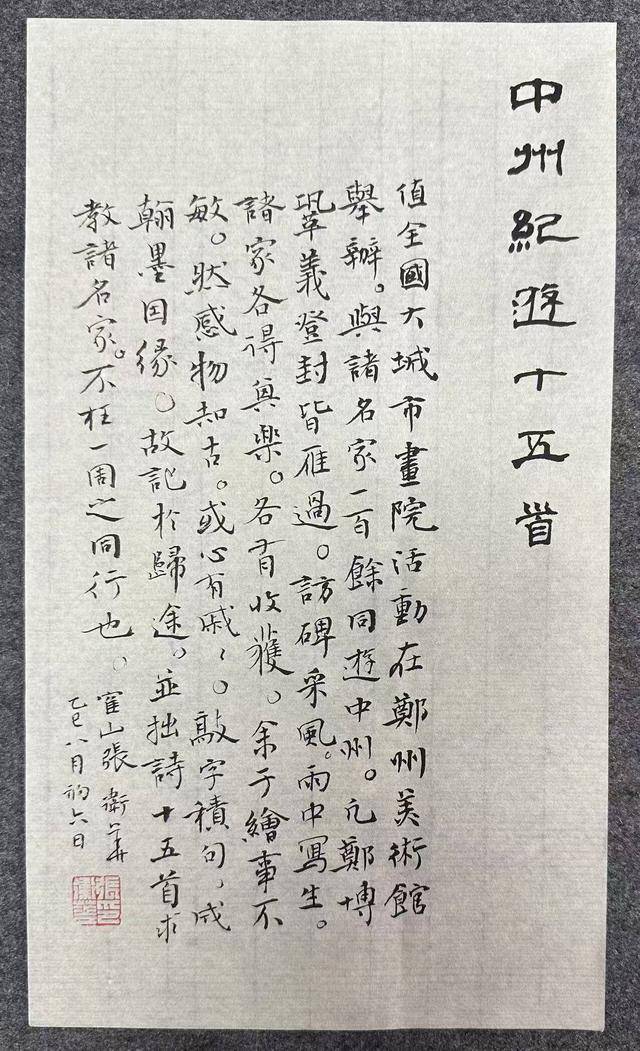 中州紀遊十五首
值全國大城市畫院活動在鄭州美術館
舉辦。與諸名家一百餘同遊中州。凡鄭博
鞏義登封皆雁過。訪碑采風。雨中寫生。
諸家各得其樂。各有收獲。余于繪事不
敏。狀感物知古。或心有戚々。敲字積句,成
翰墨因緣。故記於歸途。並拙詩十五首求
教諸名家。不枉一周之同行也。
山張衛華
乙巳八月初六日